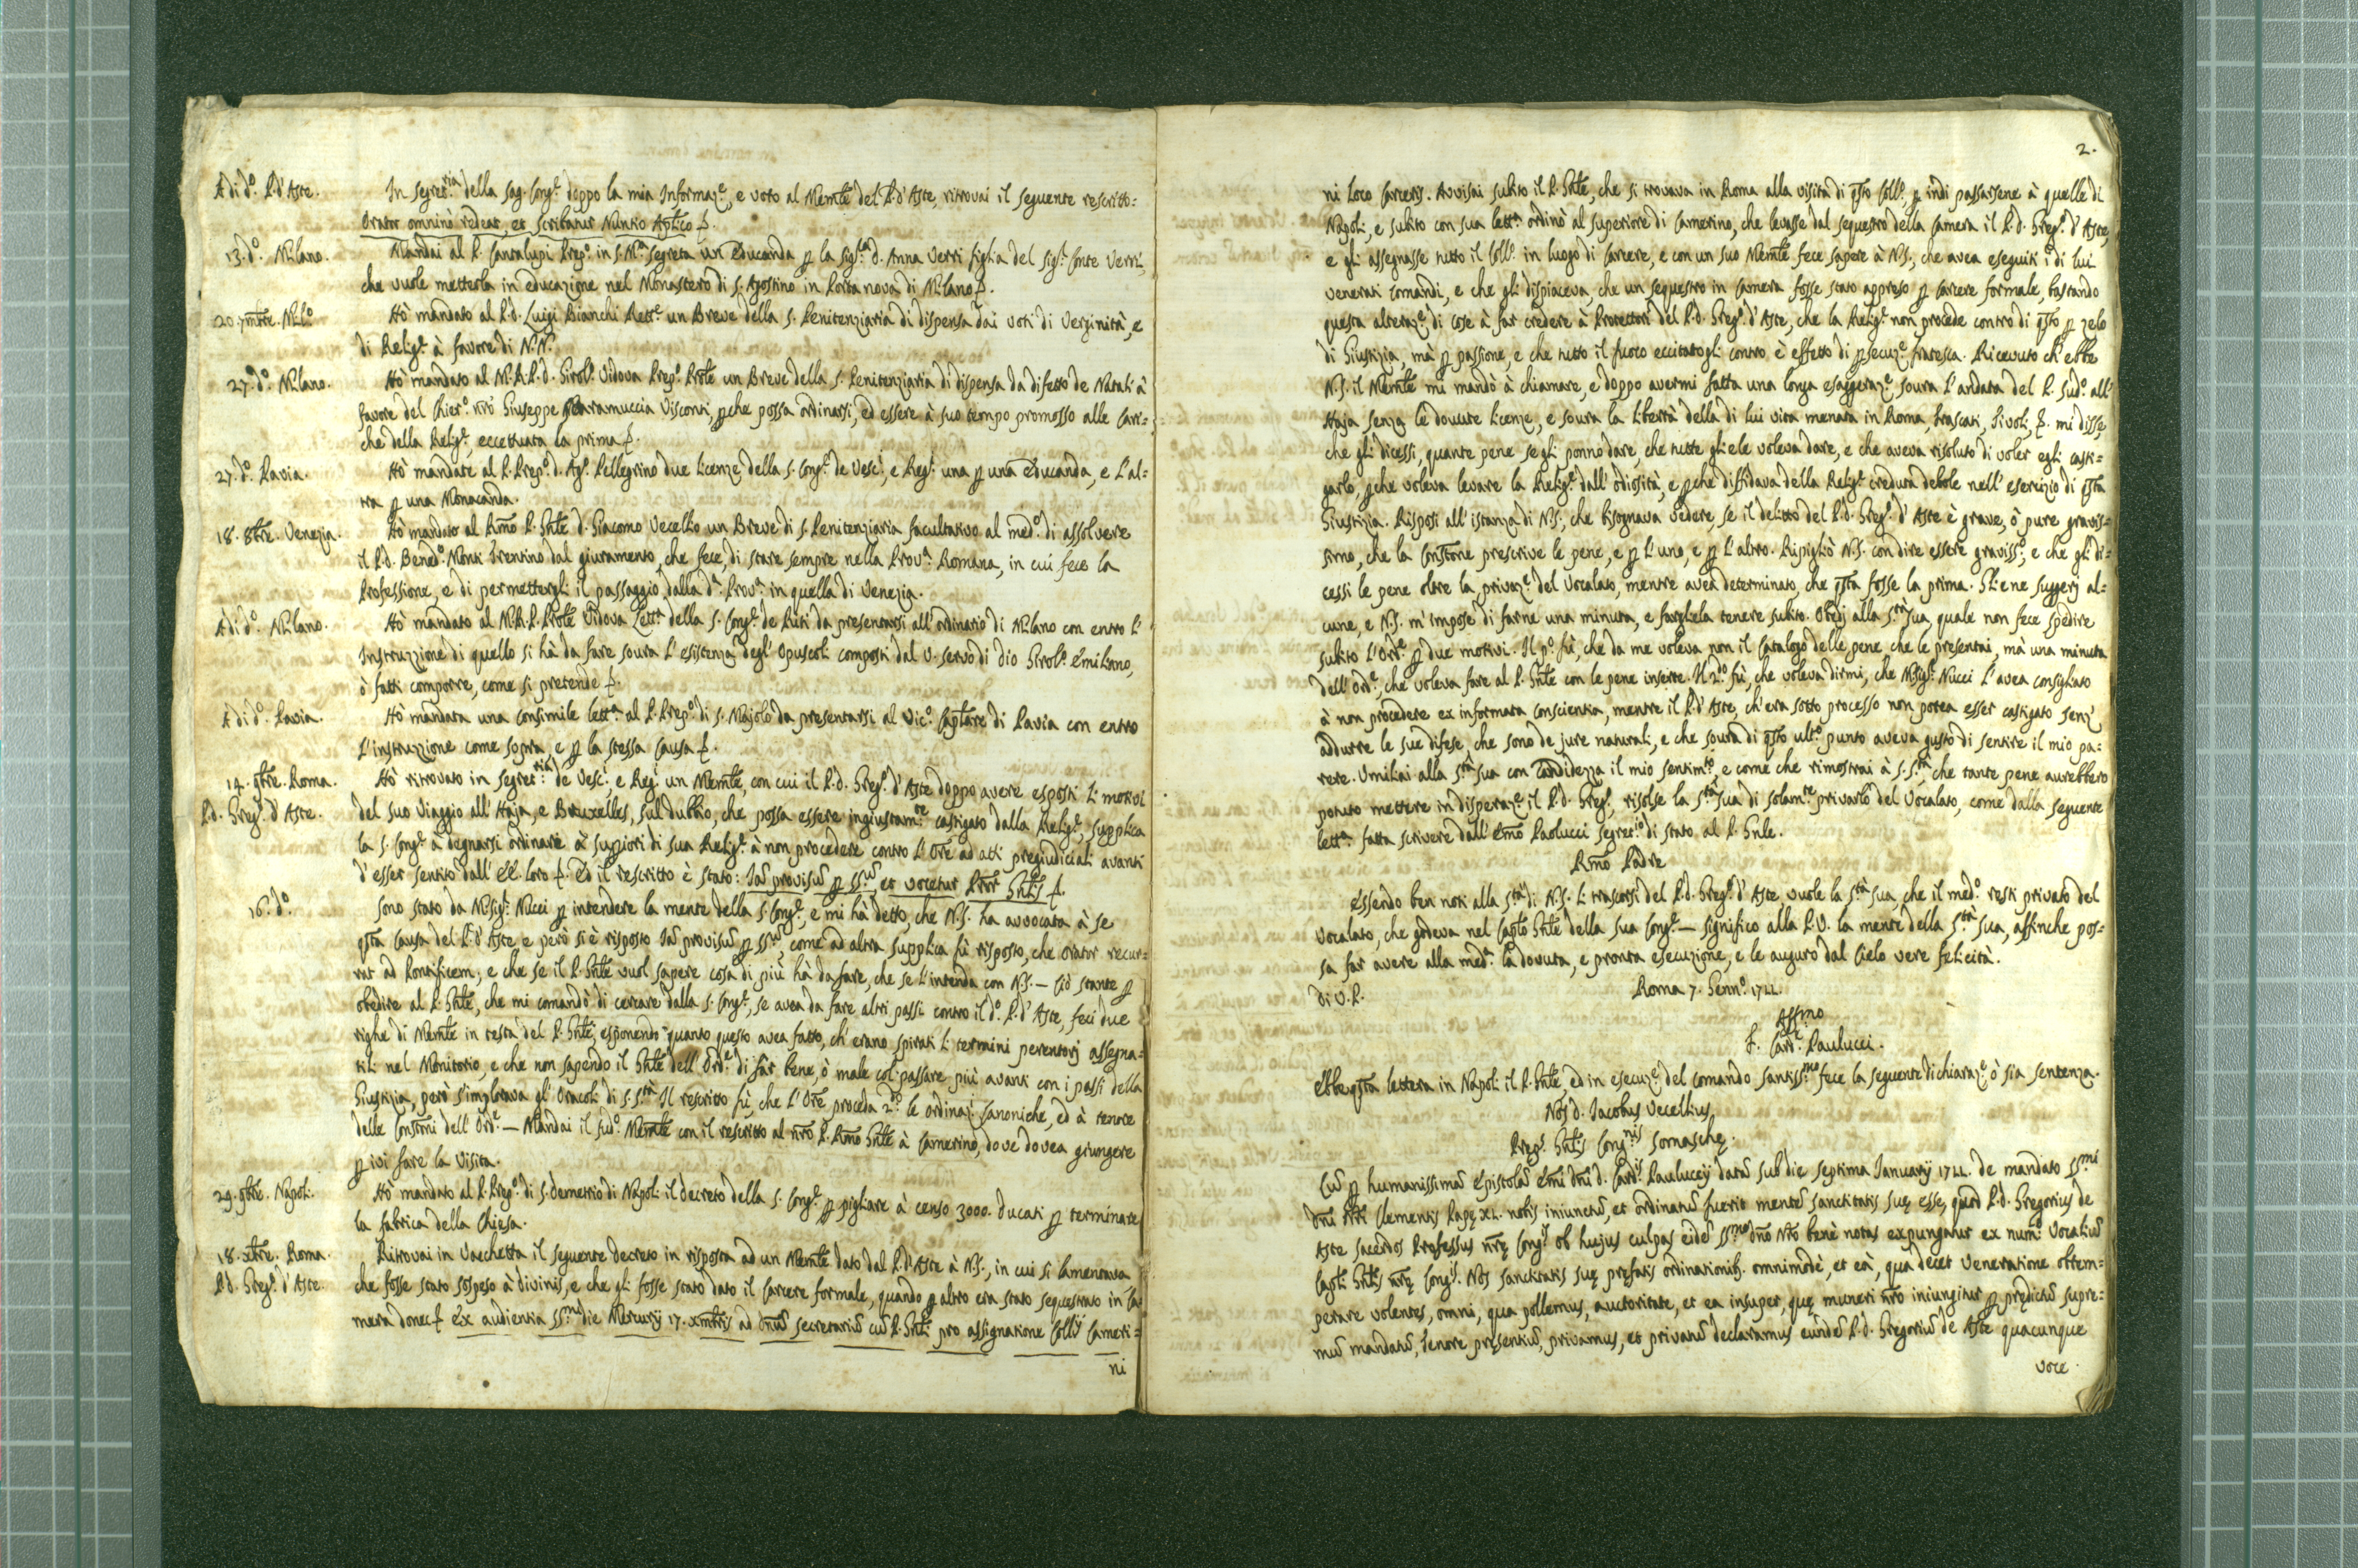 A di d.º P. d'Aste. In Segret.ria della Sag. Cong.e doppo la mia Informaz.e, e voto al Memle del P. d'Aste, ritrovai il seguente rescritto:
Orator omninò redeat, et scribatur Nuntio Aplico &.
13. d.º Milano. Mandai al P. Cantalupi Prep.º in S. M.a Segreta un Educanda p la Sig.ra d. Anna Verri figlia del Sig.r Conte Verri,
che vuole metterla in educazione nel Monastero di S. Agostino in Porta nova di Milano &.
20. 7mbre. Mil.º Hò mandato al P. d. Luigi Bianchi Rett.e un Breve della S. Penitenziaria di dispensa dai voti di Verginità, e
di Relig.e à favore di N.N.
27. d.º Milano. Hò mandato al M.R.P. d. Girol.º Vidova Prep.º Prôle un Breve della S. Penitenziaria di dispensa da difetto de Natali à
favore del Chier.º nrô Giuseppe Scaramuccia Visconti, pche possa ordinarsi, ed essere à suo tempo promosso alle Cari=
che della Relig.e, eccettuata la prima &.
27. d.º Pavia. Hò mandate al P. Prep.º d. Ag.º Pellegrino due licenze della S. Cong.e de Vesc.i, e Reg.i una p una Educanda, e l'al=
tra p una Monacanda.
18. 8bre. Venezia. Hò mandato al Rmô P. Gnle d. Giacomo Vecellio un Breve di S. Penitenziaria facultativo al med.º di assolvere
il P. d. Bened.º Monti Trentino dal giuramento, che fece, di stare sempre nella Prov.a Romana, in cui fece la
Professione, e di permettergli il passaggio dalla d.a Prov.a in quella di Venezia.
A di d.º Milano. Hò mandato al M.R.P. Prôle Vidova Lett.a della S. Cong.e de Riti da presentarsi all'ordinario di Milano con entro l'
Instruzzione di quello si hà da fare soura l'esistenza degl'Opuscoli composti dal V. servo di Dio Girol.º Emiliano,
ò fatti comporre, come si pretende &.
A di d.º Pavia. Hò mandata una consimile lett.a al P. Prep.º di S. Majolo da presentarsi al Vic.º Caplare di Pavia con entro
l'instruzzione come sopra, e p la stessa causa &.
14. 9bre. Roma. Hò ritrovato in Segret.ria de Vesc.i e Reg.i un Memle, con cui il P. d. Greg.º d'Aste doppo avere esposti li motivi
P. d. Greg.º d'Aste. del suo Viaggio all'Haja, e Bruxelles, sul dubbio, che possa essere ingiustam.te castigato dalla Relig.e, supplica
la S. Cong.e à degnarsi ordinare à Suppiori di sua Relig.e à non procedere contro l'Ore ad atti pregiudiciali avanti
d'esser sentito dall'EE. loro &. Ed il rescritto è stato: Iam provisum p SS.um et vocetur Prôr Gnlis &.
16. d.º Sono stato da Msig.r Nucci p intendere la mente della S. Cong.e, e mi hà detto, che N.S. ha avvocata à se
qsta Causa del P. d'Aste, e però si è risposto Iam provisum p SS.um, come ad altra supplica fù risposto, che Orator recur=
rat ad Pontificem; e che se il P. Gnle vuol sapere cosa di più hà da fare, che se l'intenda con N.S. — Ciò stante p
obedire al P. Gnle, che mi comandò di cercare dalla S. Cong.e, se avea da fare altri passi contro il d.º P. d'Aste, feci due
righe di Memle in testa del P. Gnle, esponendo quanto questo avea fatto, ch'erano spirati li termini perentorj assegna=
tili nel Monitorio, e che non sapendo il Gnle dell'Ord.e di far bene, ò male col passare più avanti con i passi della
Giustizia, però s'implorava gl'Oracoli di S. S.tà. Il rescritto fù, che l'Ore proceda 2.do le ordinaz.i Canoniche, ed à tenore
delle Constni dell'Ord.e — Mandai il sud.º Memle con il rescritto al nrô P. Rmô Gnle à Camerino, dove dovea giungere
p ivi fare la Visita.
29. 9bre. Napoli. Hò mandato al P. Prep.º di S. Demetrio di Napoli il decreto della S. Cong.e p pigliare à censo 3000. ducati p terminare
la fabrica della Chiesa.
18. xbre. Roma. Ritrovai in Vacchetta il seguente decreto in risposta ad un Memle dato dal P. d'Aste à N.S., in cui si lamentava
P. d. Greg.º d'Aste. che fosse stato sospeso à divinis, e che gli fosse stato dato il Carcere formale, quando p altro era stato sequestrato in Ca=
mera donec & Ex audientia SS.mi die Mercurij 17. xmbris ad dnum Secretarium cum P. Gnli pro assignatione Collij Cameri=
ni
2.
ni loco Carceris. Avvisai subito il P. Gnle, che si trovava in Roma alla visita di qsto Coll.º, p indi passarsene à quelle di
Napoli, e subito con sua lett.a ordinò al superiore di Camerino, che levasse dal sequestro della Camera il P. d. Greg.º d'Aste,
e gli assegnasse tutto il Coll.º in luogo di Carcere, e con un suo Memle fece sapere à N.S., che avea eseguiti i di lui
venerati comandi, e che gli dispiaceva, che un sequestro in Camera fosse stato appreso p Carcere formale, bastando
questa alteraz.e di cose à far credere à Protettori del P. d. Greg.º d'Aste, che la Relig.e non procede contro di qsto p zelo
di Giustizia, mà p passione, e che tutto il fuoco eccitatogli contro, è effetto di psecuz.e fratesca. Ricevuto ch'ebbe
N.S. il Memle mi mandò à chiamare, e doppo avermi fatta una longa esaggeraz.e soura l'andata del P. sud.º all'
Haja senza le dovute licenze, e soura la libertà della di lui vita menata in Roma, Frascati, Tivoli, &. mi disse,
che gli dicessi, quante pene se gli ponno dare, che tutte gli ele voleva dare, e che aveva risoluto di voler egli casti=
garlo, pche voleva levare la Relig.e dall'odiosità, e pche diffidava della Relig.e creduta debole nell'esercizio di qsta
Giustizia. Risposi all'istanza di N.S., che bisognava vedere, se il delitto del P. d. Greg.º d'Aste è grave, ò pure gravis=
simo, che la Constone prescrive le pene, e p l'uno, e p l'altro. Ripigliò N.S. con dire essere graviss.º, e che gli di=
cessi le pene oltre la privaz.e del Vocalato, mentre avea determinato, che qsta fosse la prima. Gliene suggerj al=
cune, e N.S. m'impose di farne una minuta, e farglela tenere subito. Obedj alla S.tà Sua, quale non fece spedire
subito l'Ord.e p due motivi. Il p.º fù, che da me voleva non il Catalogo delle pene, che le presentai, mà una minuta
dell'Ord.e, che voleva fare al P. Gnle con le pene inserte. Il 2.do fù, che voleva dirmi, che Msig.r Nucci l'avea consigliato
à non procedere ex informata conscientia, mentre il P. d'Aste, ch'era sotto processo non potea esser castigato senz'
addurre le sue difese, che sono de jure naturali, e che soura di qsto ult.º punto aveva gusto di sentire il mio pa=
rere. Umiliai alla S.tà Sua con candidezza il mio sentim.to, e come che rimostrai à S. S.tà, che tante pene aurebbero
potuto mettere in disperaz.e il P. d. Greg.º, risolse la S.tà Sua di solam.te privarlo del Vocalato, come dalla seguente
lett.a fatta scrivere dall'Emô Paolucci Segret.io di stato al P. Gnle.
Rmô Padre
Essendo ben noti alla S.tà di N.S. li trascorsi del P. d. Greg.º d'Aste, vuole la S.tà Sua, che il med.º resti privato del
Vocalato, che godeva nel Caplo Gnle della sua Cong.e — significo alla P.V. la mente della S.tà Sua, affinche pos=
sa far avere alla med.a la dovuta, e pronta esecuzione, e le auguro dal Cielo vere felicità.
di V.P. Roma 7. Genn.º 1722.
Affmo
F. Card.e Paulucci.
Ebbe qsta lettera in Napoli il P. Gnle, ed in esecuz.e del comando santiss.mo fece la seguente dichiaraz.e, ò sia sentenza.
Nos d. Iacobus Vecellius
Prep.s Gnlis Cong.nis Somaschę.
Cum p humanissimam Epistolam Emi Dni d. Card.is Pauluccij datam sub die septima Januarij 1722. de mandato SS.mi
Dni Nri Clementis Papę XI. nobis iniunctum, et ordinatum fuerit mentem sanctitatis suę esse, quod P. d. Gregorius de
Aste sacerdos Professus nrę Cong.is ob hujus culpas eidem SS.mo Dno Nro benè notas expungatur ex num.º Vocalium
Capli Gnlis nrę Cong.is. Nos sanctitatis suę pręfatis ordinationib. omnimodè, et eà, qua decet veneratione obtem=
perare volentes, omni, qua pollemus, auctoritate, et ea insuper, quę muneri nro iniungitur p prędictum supre=
mum mandatum, tenore pręsentium, privamus, et privatum declaramus eundem P. d. Gregorium de Aste quacunque
voce